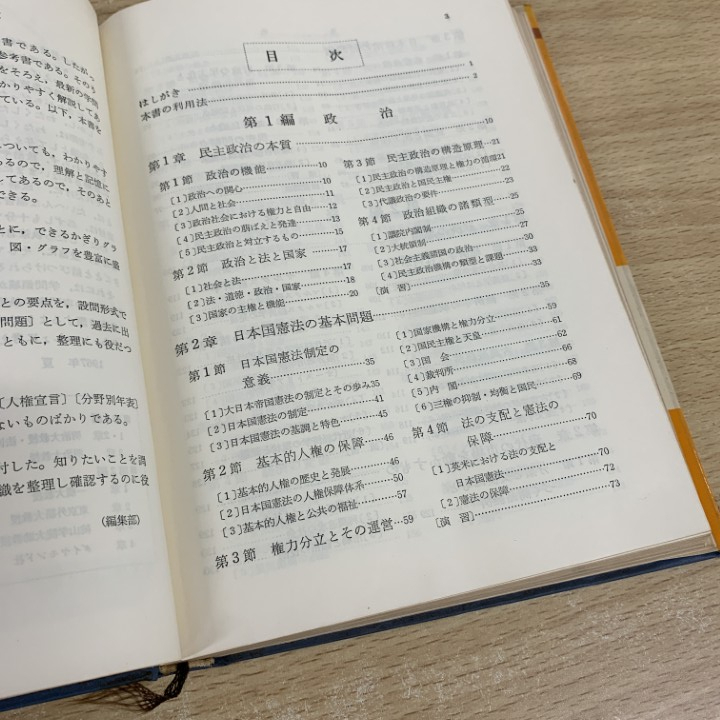 書である。したがっ
参考書である。そのう
をそろえ，最新の学問
かりやすく解説してあ
ている。以下，本書を
ついても，わかりやす
あるので，理解と記憶に
してあるので，そのあと
できる。
とに，できるかぎりグラ
図・グラフを豊富に量
との要点を，設問形式で
問題］として，過去に出
ともに，整理にも役だつ
［人権宣言］［分野別年表］
ないものばかりである。
付した。知りたいことを調
識を整理し確認するのに役
（編集部）
3
目次
はしがき 1
本書の利用法 2
第1編 政治
第1章 民主政治の本質 10
第1節 政治の機能 10
〔1〕政治への関心 10
〔2〕人間と社会 11
〔3〕政治社会における権力と自由 12
〔4〕民主政治の萠ばえと発達 13
〔5〕民主政治と対立するもの 15
第2節 政治と法と国家 17
〔1〕社会と法 17
〔2〕法・道徳・政治・国家 18
〔3〕国家の主権と機能 20
第3節 民主政治の構造原理 21
〔1〕民主政治の構造原理と権力の循環 21
〔2〕民主政治と国民主権 22
〔3〕代議政治の要件 23
第4節 政治組織の諸類型 25
〔1〕議院内閣制 25
〔2〕大統領制 27
〔3〕社会主義諸国の政治 30
〔4〕民主政治機構の類型と課題 33
〔演習〕 33
第2章 日本国憲法の基本問題 35
第1節 日本国憲法制定の
意義 35
〔1〕大日本帝国憲法の制定とその歩み 35
〔2〕日本国憲法の制定 41
〔3〕日本国憲法の基調と特色 45
第2節 基本的人権の保障 46
〔1〕基本的人権の歴史と発展 46
〔2〕日本国憲法の人権保障体系 50
〔3〕基本的人権と公共の福祉 57
第3節 権力分立とその運営 59
〔1〕国家機構と権力分立 59
〔2〕国民主権と天皇 61
〔3〕国会 62
〔4〕裁判所 66
〔5〕内閣 68
〔6〕三権の抑制・均衡と国民 69
第4節 法の支配と憲法の
保障 70
〔1〕英米における法の支配と
日本国憲法 70
〔2〕憲法の保障 72
〔演習〕 73